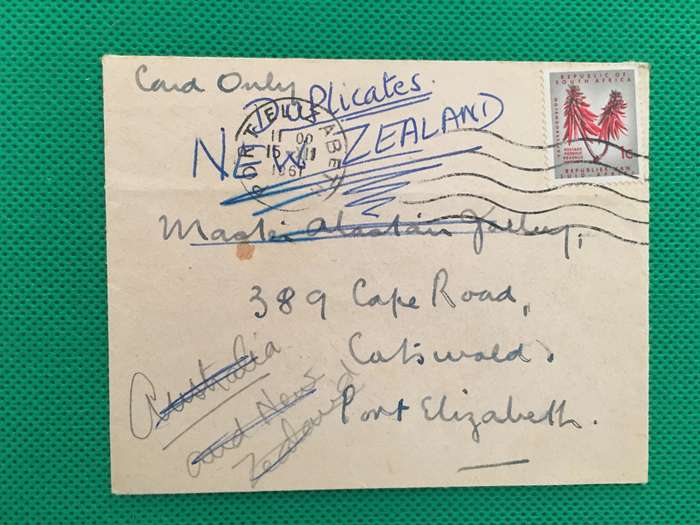 Card Only
Duplicates.
NEW ZEALAND
PORT ELIZABETH
11 00
15 XII
1961
REPUBLIC OF
SOUTH AFRICA
POSTAGE
REVENUE
1c
REPUBLIEK VAN
SUID-AFRIKA
Master Alastair
389 Cape Road,
Cotswold.
Port Elizabeth.
Australia
and New
Zealand